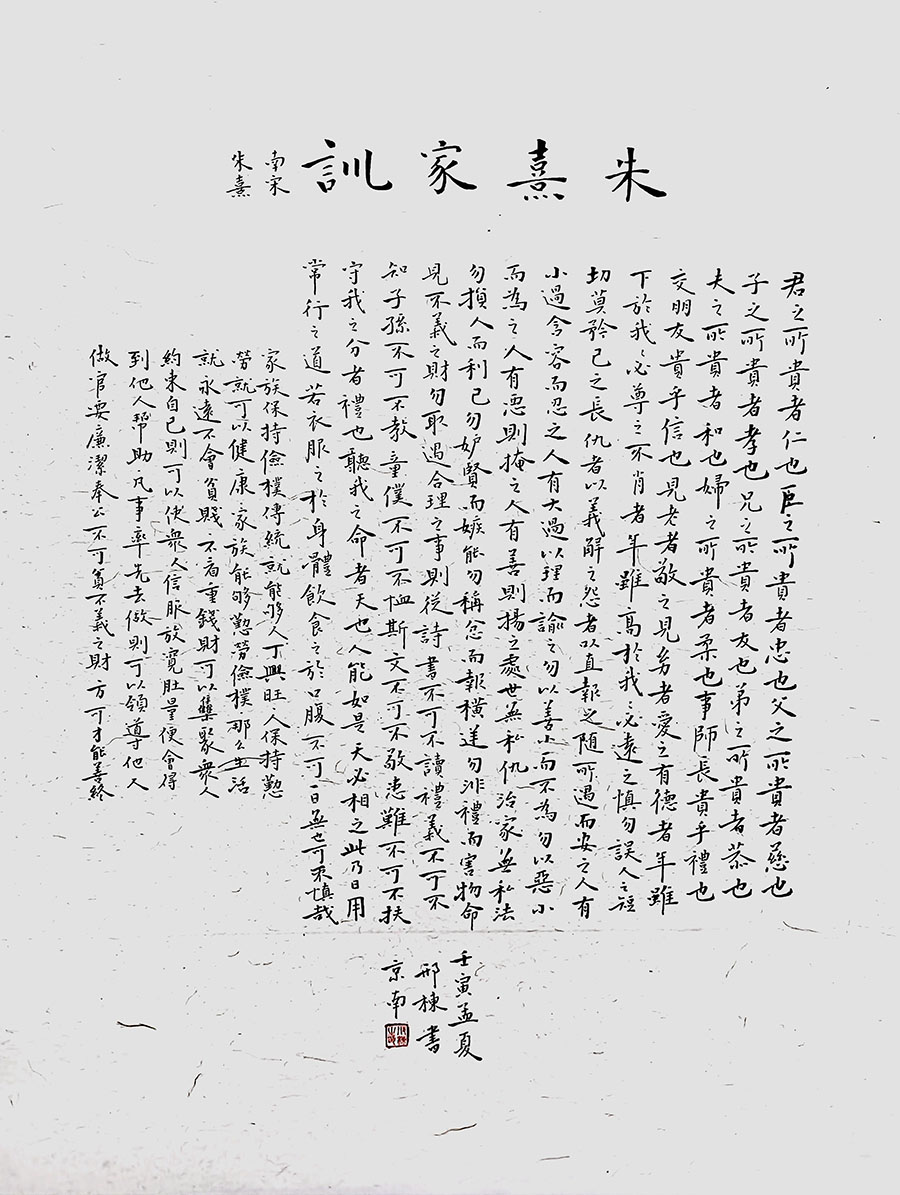 朱熹家訓
南宋
朱熹
君之所貴者仁也臣之所貴者忠也父之所貴者慈也
子之所貴者孝也兄之所貴者友也弟之所貴者恭也
夫之所貴者和也婦之所貴者柔也事師長貴乎禮也
交朋友貴乎信也見老者敬之見幼者愛之有德者年雖
下於我我必尊之不肖者年雖高於我我必遠之慎勿談人之短
切莫矜己之長仇者以義解之怨者以直報之随所遇而安之人有
小過含容而忍之人有大過以理而諭之勿以善小而不為勿以惡小
而為之人有惡則掩之人有善則揚之處世無私仇治家無私法
勿損人而利己勿妒賢而嫉能勿稱忿而報橫逆勿非禮而害物命
見不義之財勿取遇合理之事則從詩書不可不讀禮義不可不
知子孫不可不教童僕不可不恤斯文不可不敬患難不可不扶
守我之分者禮也聽我之命者天也人能如是天必相之此乃日用
常行之道若衣服之於身體飲食之於口腹不可一日無也可不慎哉
家族保持儉樸傳統就能够人丁興旺人保持勤
勞就可以健康家族能够勤勞儉樸那么生活
就永遠不會貧賤不看重錢財可以集聚衆人
約束自己則可以使衆人信服放寬肚量便會得
到他人幫助凡事率先去做則可以領導他人
做官要廉潔奉公不可貪不義之財方可才能善終
壬寅孟夏
邢棟書
京南